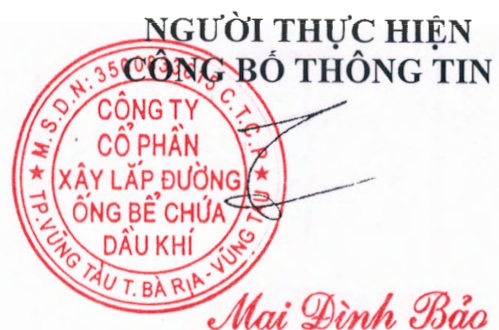 NGƯỜI THỰC HIỆN
CÔNG BỐ THÔNG TIN
CÔNG TY
CỔ PHẦN
XÂY LẮP ĐƯỜNG
ỐNG BỂ CHỨA
DẦU KHÍ
M.S.D.N: C.T.C.P
TP.VŨNG TÀU T. BÀ RỊA - VŨNG TÀU
Mai Đình Bảo